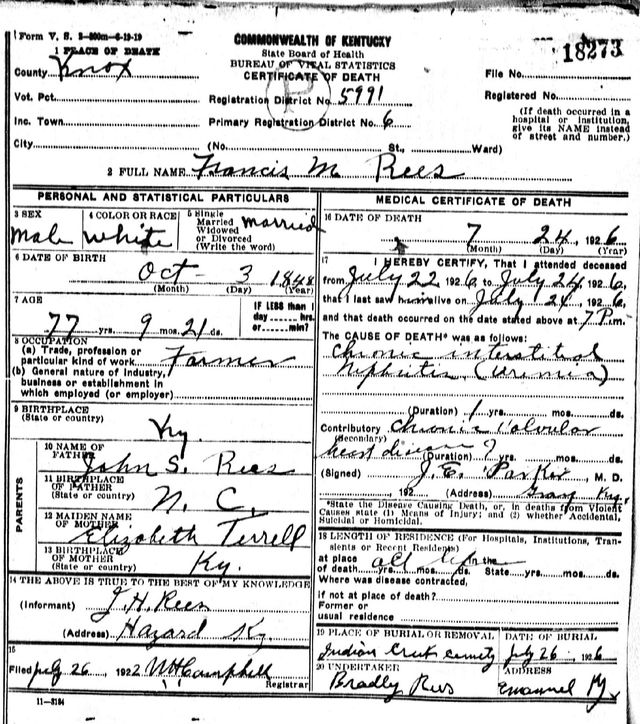 Form V. S. 3-500m-6-19-19
1 PLACE OF DEATH
COMMONWEALTH OF KENTUCKY
State Board of Health
BUREAU OF VITAL STATISTICS
CERTIFICATE OF DEATH
18273
County Knox
File No.
Vot. Pct.
Registration District No 5991
Registered No.
Inc. Town
Primary Registration District No. 6
(If death occurred in a
hospital or institution,
give its NAME instead
of street and number.)
City (No. St., Ward)
P
2 FULL NAME Francis M Rees
PERSONAL AND STATISTICAL PARTICULARS
3 SEX
Male
4 COLOR OR RACE
White
5 Single
Married
Widowed
or Divorced
(Write the word)
Married
6 DATE OF BIRTH
Oct- 3 1848
(Month) (Day) (Year)
7 AGE
77 yrs. 9 mos. 21 ds.
IF LESS than 1
day hrs.
or min?
8 OCCUPATION
(a) Trade, profession or
particular kind of work Farmer
(b) General nature of Industry,
business or establishment in
which employed (or employer)
9 BIRTHPLACE
(State or country)
Ky.
PARENTS
10 NAME OF
FATHER
John S. Rees
11 BIRTHPLACE
OF FATHER
(State or country)
N. C.
12 MAIDEN NAME
OF MOTHER
Elizabeth Terrell
13 BIRTHPLACE
OF MOTHER
(State or country)
Ky.
14 THE ABOVE IS TRUE TO THE BEST OF MY KNOWLEDGE
(Informant) J. H. Rees
(Address) Hazard Ky.
15
Filed July 26 1922 WH Campbell
Registrar
11-3184
MEDICAL CERTIFICATE OF DEATH
16 DATE OF DEATH
7 24, 1926
(Month) (Day) (Year)
17 I HEREBY CERTIFY, That I attended deceased
from July 22 1926, to July 24 1926,
that I last saw him alive on July 24, 1926,
and that death occurred on the date stated above at 7 P.m.
The CAUSE OF DEATH* was as follows:
Chronic interstitial
Nephritis (Uremia)
(Duration) 1 yrs. mos. ds.
Contributory Chronic Valvular
(Secondary)
heart disease (Duration) ? yrs. mos. ds.
(Signed) J. E. Parker, M. D.
, 192 (Address) Gray Ky.
*State the Disease Causing Death, or, in deaths from Violent
Causes state (1) Means of Injury; and (2) whether Accidental,
Suicidal or Homicidal.
18 LENGTH OF RESIDENCE (For Hospitals, Institutions, Tran-
sients or Recent Residents)
at place all life In the
of death yrs. mos. ds. State yrs. mos. ds.
Where was disease contracted,
if not at place of death?
Former or
usual residence
19 PLACE OF BURIAL OR REMOVAL
Indian Creek
DATE OF BURIAL
July 26, 1926
20 UNDERTAKER
Bradly Rees
ADDRESS
Emanuel Ky